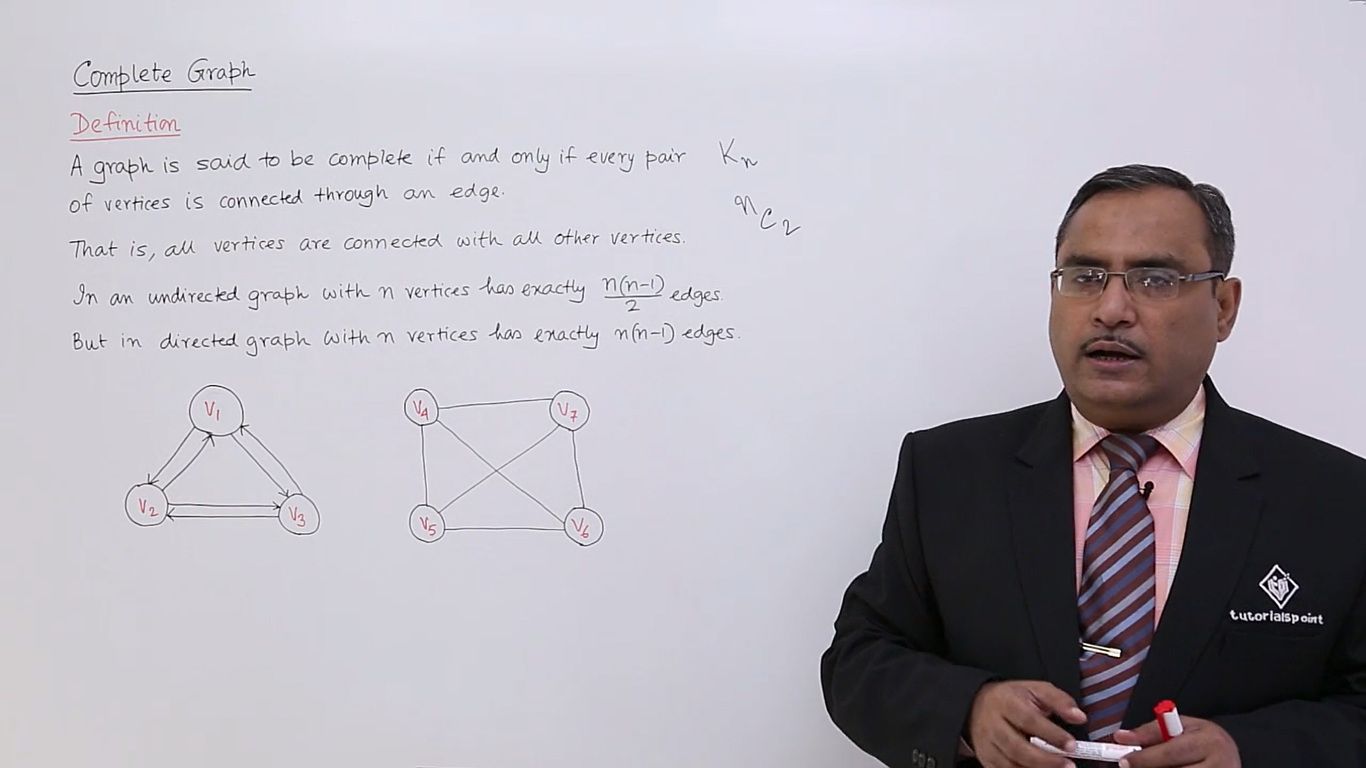 Complete Graph
Definition
A graph is said to be complete if and only if every pair
of vertices is connected through an edge.
That is, all vertices are connected with all other vertices.
In an undirected graph with n vertices has exactly n(n-1)/2 edges.
But in directed graph with n vertices has exactly n(n-1) edges.
Kn
nC2
V1
V2
V3
V4
V7
V5
V6
tutorialspoint